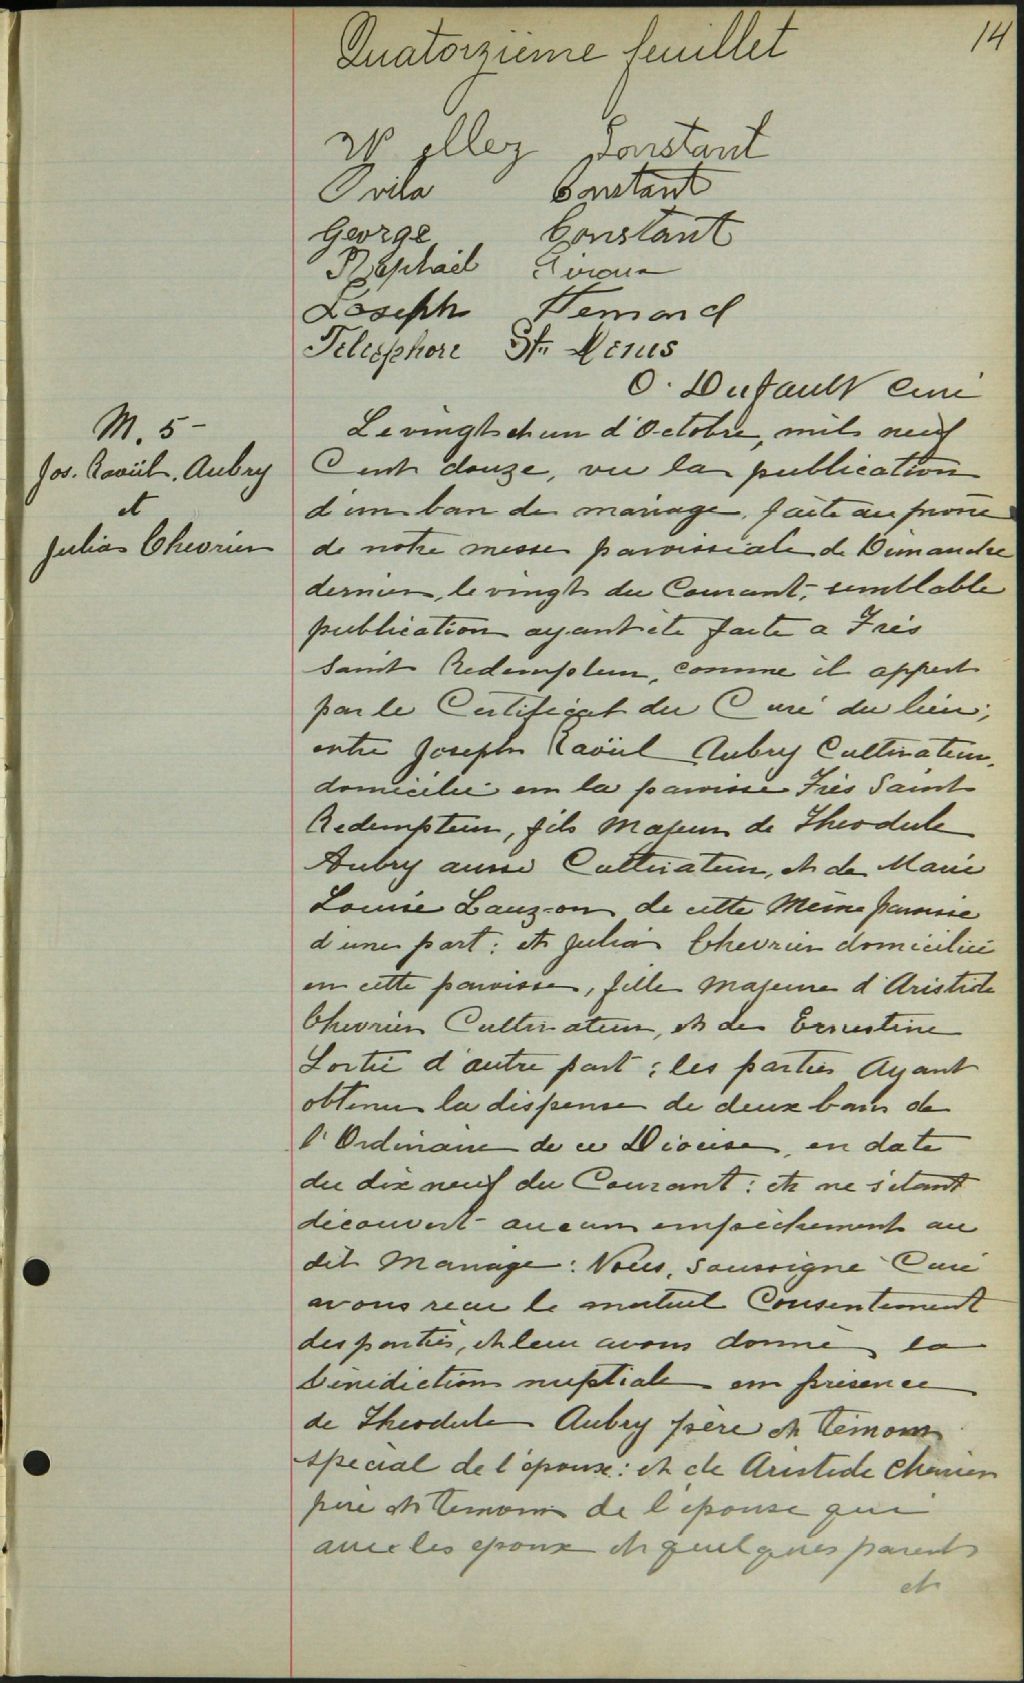 Quatorzième feuillet
14
Constant
Ovila Constant
George Constant
Raphaël Giroux
Joseph Hemond
Telesphore St. Denis
O. Dufault Curé
M. 5-
Jos. Raoül. Aubry
et
Julia Chevrier
Le vingt et un d'Octobre, mil neuf
Cent douze, vu la publication
d'un ban de mariage, faite au prone
de notre messe paroissiale de Dimanche
dernier, le vingt du Courant, semblable
publication ayant été faite a Très
Saint Redempteur, comme il appert
par le Certificat du Curé du lieu;
entre Joseph Raoül Aubry Cultivateur,
domicilié en la paroisse Très Saint
Redempteur, fils Majeur de Theodule
Aubry aussi Cultivateur, et de Marie
Louise Lauzon de cette Même paroisse
d'une part: et Julia Chevrier domiciliée
en cette paroisse, fille Majeure d'Aristide
Chevrier Cultivateur, et de Ernestine
Lortie d'autre part; les parties Ayant
obtenu la dispense de deux bans de
l'Ordinaire de ce Diocèse, en date
du dix neuf du Courant: et ne s'étant
découvert aucun empêchement au
dit Mariage: Nous, soussigné Curé
avons recu le mutuel Consentement
des parties, et leur avons donné la
bénédiction nuptiale en présence
de Theodule Aubry père et témoin
spécial de l'époux: et de Aristide Chevrier
père et temoin de l'épouse qui
avec les epoux et quelques parents
et